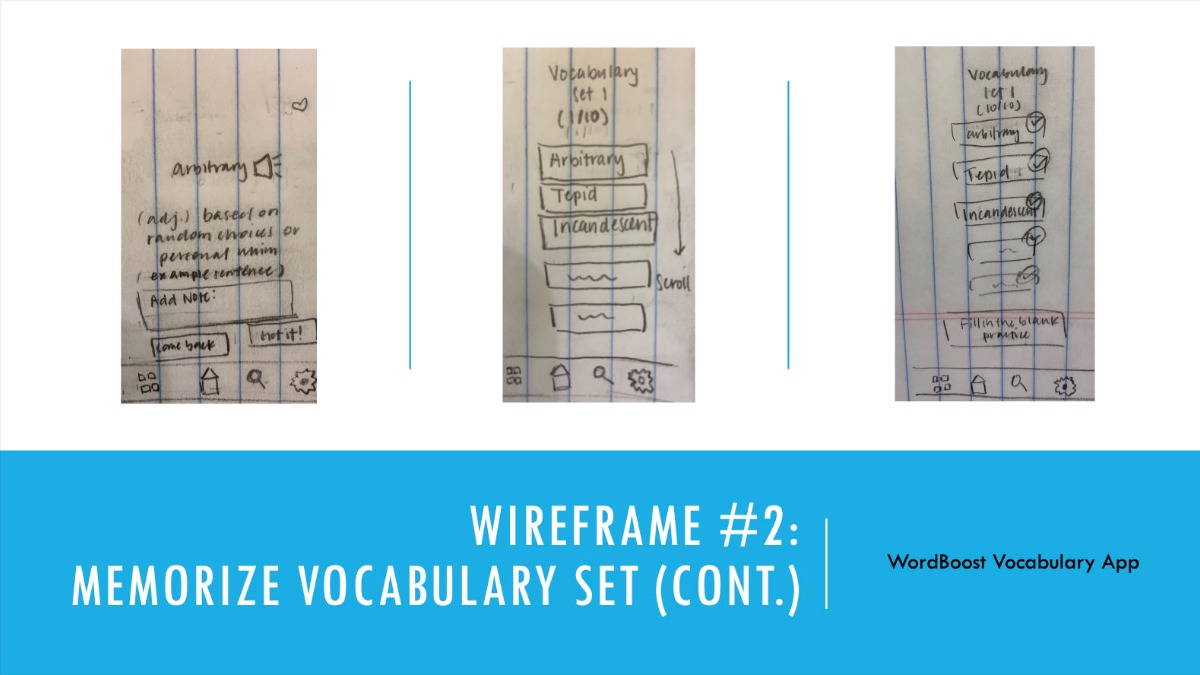 arbitrary
(adj.) based on
random choices or
personal whim
(example sentence)
Add Note:
Come back
Got it!
Vocabulary
set 1
(1/10)
Arbitrary
Tepid
Incandescent
Scroll
Vocabulary
set 1
(10/10)
arbitrary
Tepid
Incandescent
Fill in the blank
practice
WIREFRAME #2:
MEMORIZE VOCABULARY SET (CONT.)
WordBoost Vocabulary App